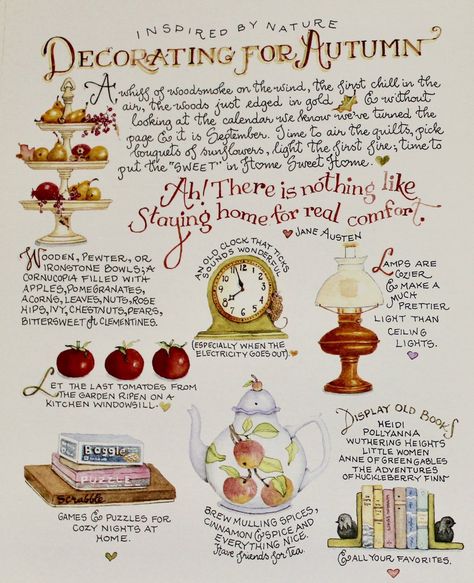 INSPIRED BY NATURE
DECORATING FOR AUTUMN
A whiff of woodsmoke on the wind, the first chill in the
air, the woods just edged in gold & without
looking at the calendar we know we've turned the
page & it is September. Time to air the quilts, pick
bouquets of sunflowers, light the first fire; time to
put the "SWEET" in Home Sweet Home.
Ah! There is nothing like
Staying home for real comfort.
JANE AUSTEN
WOODEN, PEWTER, OR
IRONSTONE BOWLS; A
CORNUCOPIA FILLED WITH
APPLES, POMEGRANATES,
ACORNS, LEAVES, NUTS, ROSE
HIPS, IVY, CHESTNUTS, PEARS,
BITTERSWEET or CLEMENTINES.
AN OLD CLOCK THAT TICKS
SOUNDS WONDERFUL
(ESPECIALLY WHEN THE
ELECTRICITY GOES OUT).
LAMPS ARE
COZIER
& MAKE A
MUCH
PRETTIER
LIGHT THAN
CEILING
LIGHTS.
LET THE LAST TOMATOES FROM
THE GARDEN RIPEN ON A
KITCHEN WINDOWSILL.
Boggle
PUZZLE
Scrabble
GAMES & PUZZLES FOR
COZY NIGHTS AT
HOME.
BREW MULLING SPICES,
CINNAMON & SPICE AND
EVERYTHING NICE.
Have friends for Tea.
DISPLAY OLD BOOKS
HEIDI
POLLYANNA
WUTHERING HEIGHTS
LITTLE WOMEN
ANNE OF GREEN GABLES
THE ADVENTURES
OF HUCKLEBERRY FINN
& ALL YOUR FAVORITES.